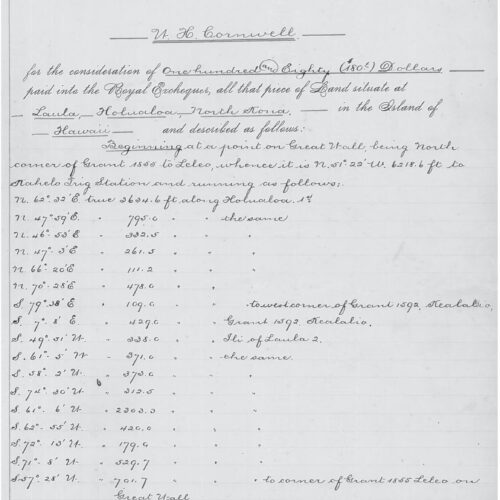 W. H. Cornwell
for the consideration of One hundred and Eighty (180.) Dollars
paid into the Royal Exchequer, all that piece of Land situate at
Laula, Holualoa, North Kona. in the Island of
Hawaii and described as follows:
Beginning at a point on Great Wall, being North
corner of Grant 1855 to Leleo, whence it is N. 51° 22' W. 6218.6 ft to
Kahelo Trig Station and running as follows;
N. 62° 32' E true 3634.6 ft along Holualoa 1st
N. 47° 59' E " 795.0 " the same
N. 46° 53' E " 332.5 " "
N. 47° 3' E " 261.5 " "
N. 66° 20' E " 111.2 " "
N. 70° 28' E " 478.0 " "
S. 79° 38' E " 109.0 " " to west corner of Grant 1592, Kealalio,
S. 7° 8' E " 429.0 " Grant 1592, Kealalio.
S. 49° 31' W " 338.0 " Ili of Laula 2.
S. 61° 5' W " 371.0 " the same.
S. 58° 2' W " 373.0 " "
S. 74° 30' W " 312.5 " "
S. 61° 6' W " 2303.3 " "
S. 62° 55' W " 420.0 " "
S. 72° 13' W " 179.0 " "
S. 71° 8' W " 529.7 " "
S. 57° 28' W " 701.7 " " to corner of Grant 1855 Leleo on
Great Wall